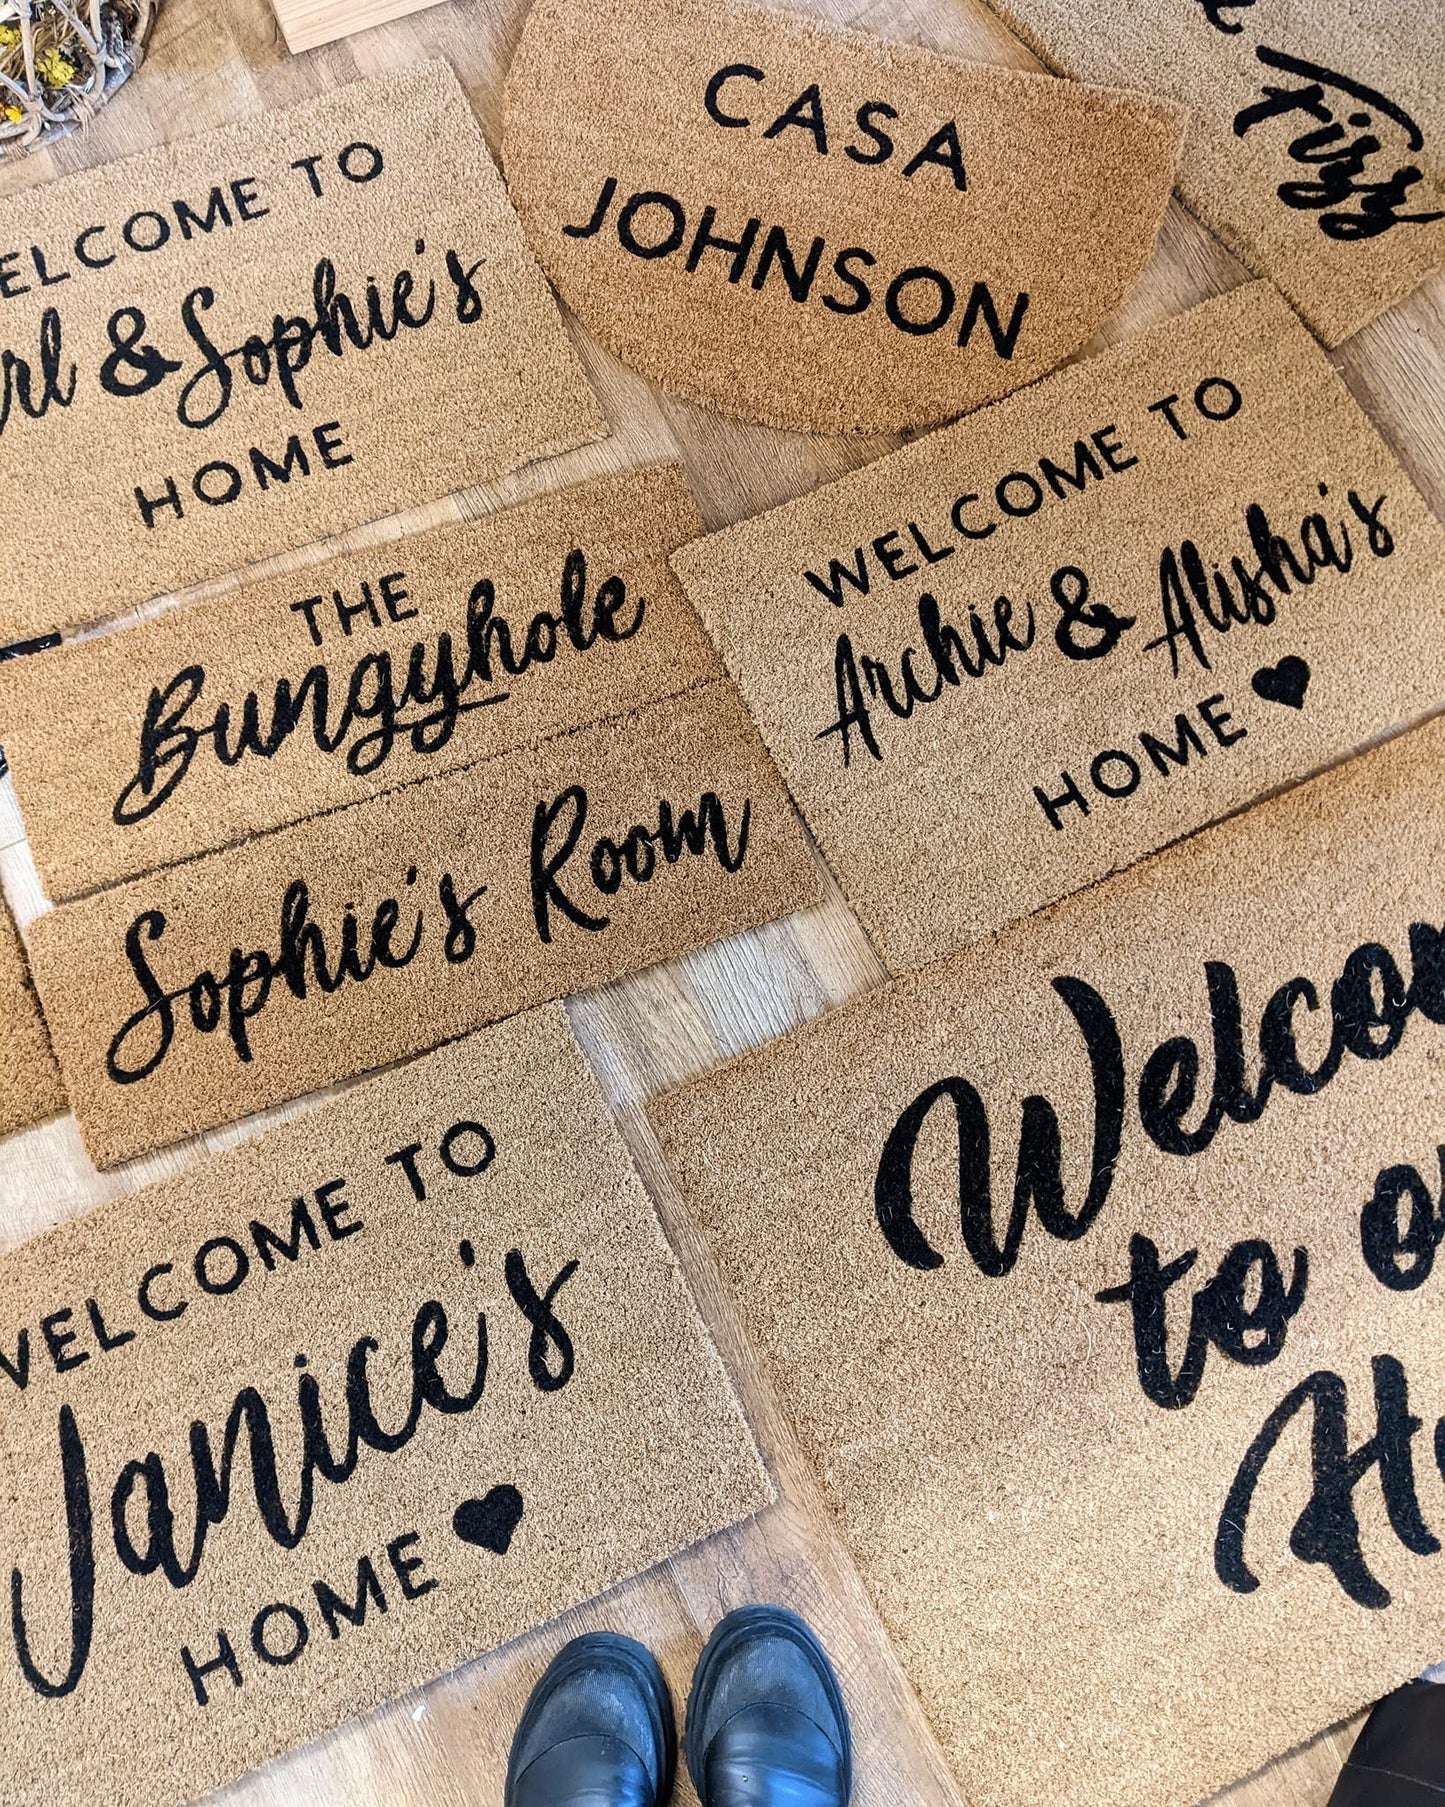 WELCOME TO
& Sophie's
HOME
CASA
JOHNSON
Fizz
THE
Bungyhole
WELCOME TO
Archie & Alisha's
HOME
Sophie's Room
WELCOME TO
Janice's
HOME
Welcom
to